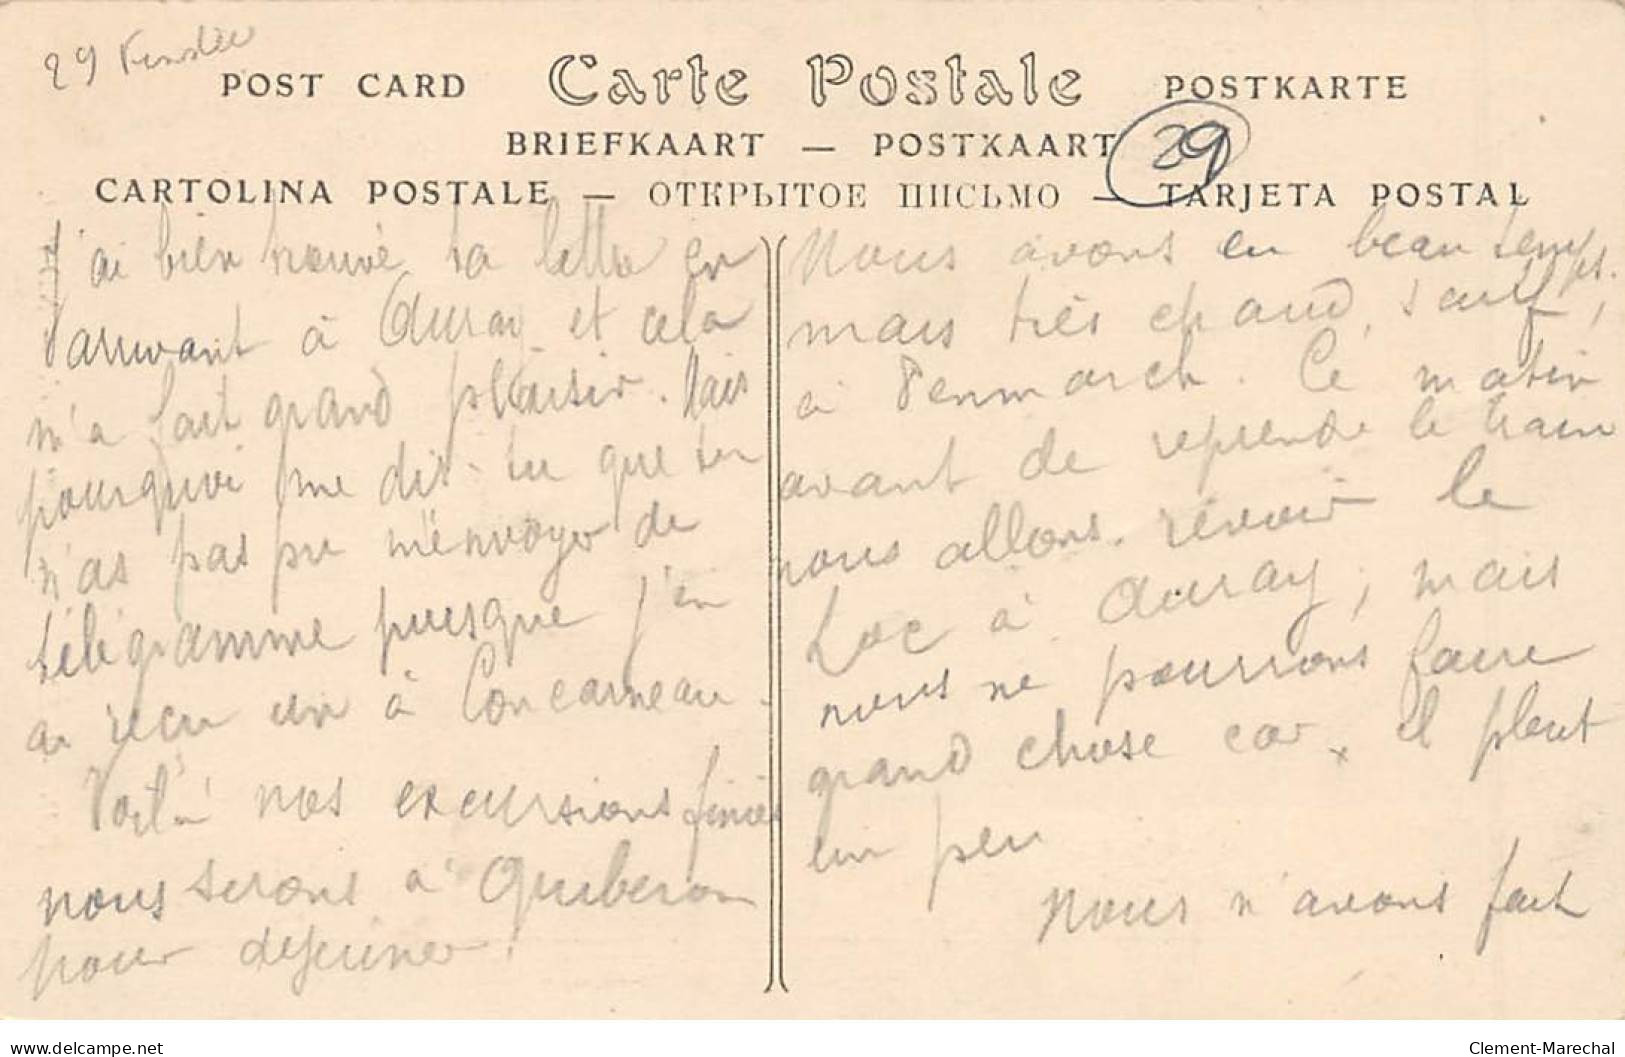 29 Finistère
POST CARD Carte Postale POSTKARTE
BRIEFKAART — POSTKAART
29
CARTOLINA POSTALE — ОТКРЫТОЕ ПИСЬМО — TARJETA POSTAL
J'ai bien trouvé ta lettre en
arrivant à Auray et cela
m'a fait grand plaisir. Mais
pourquoi me dis-tu que tu
n'as pas pu m'envoyer de
télégramme puisque j'en
ai reçu un à Concarneau.
Voilà nos excursions finies
nous serons à Quiberon
pour déjeuner.
Nous avons eu beau temps.
mais très chaud, sauf,
à Penmarch. Ce matin
avant de reprendre le train
nous allons revoir le
Loc à Auray, mais
nous ne pourrons faire
grand chose car il pleut
un peu
Nous n'avons fait
delcampe.net
Clement-Marechal